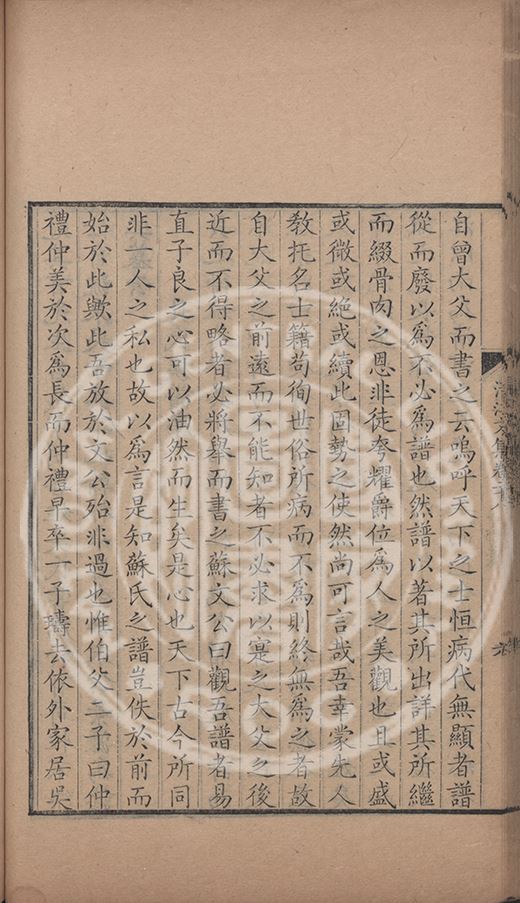 自曾大父而書之云嗚呼天下之士恒病代無顯者譜
從而廢以爲不必爲譜也然譜以著其所出詳其所繼
而綴骨肉之恩非徒夸耀爵位爲人之美觀也且或盛
或微或絶或續此固勢之使然尚可言哉吾幸蒙先人
敎托名士籍苟徇世俗所病而不爲則終無爲之者故
自大父之前遠而不能知者不必求以寔之大父之後
近而不得略者必將舉而書之蘇文公曰觀吾譜者易
直子良之心可以油然而生矣是心也天下古今所同
非一人之私也故以爲言是知蘇氏之譜豈佚於前而
始於此歟此吾放於文公殆非過也惟伯父二子曰仲
禮仲美於次爲長而仲禮早卒一子璹去依外家居吳